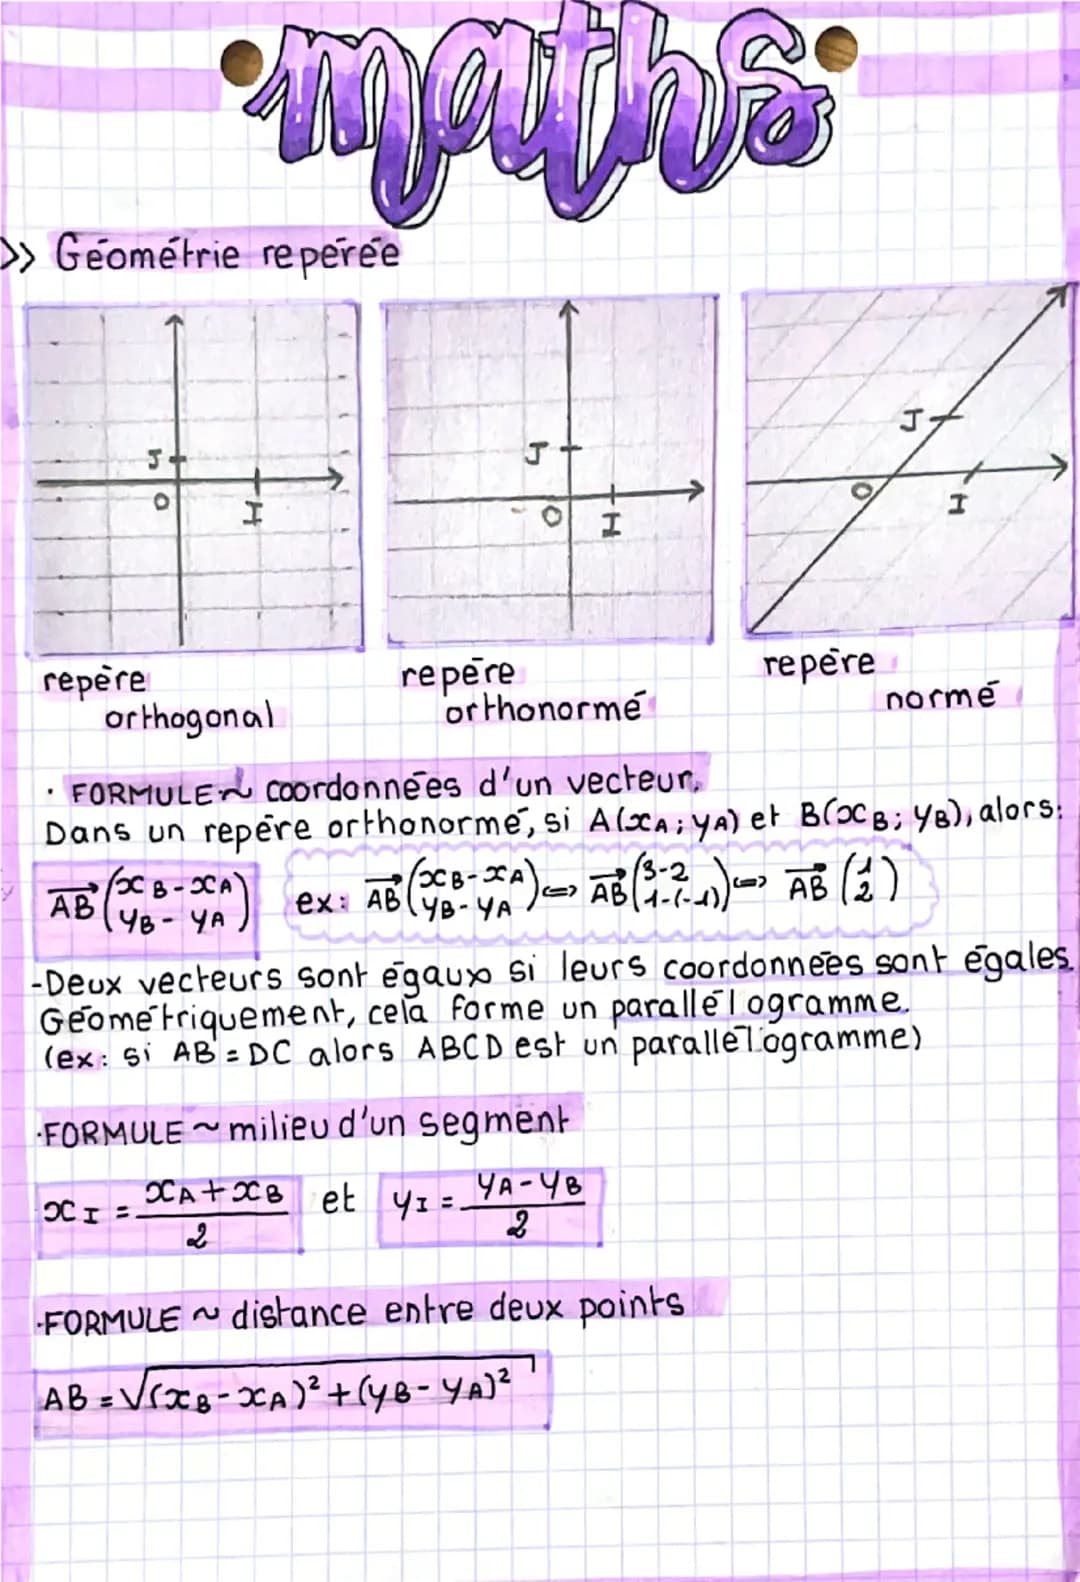 maths
>> Géométrie repérée
J
O
I
J
O
I
J
O
I
repère orthogonal
repère orthonormé
repère normé
· FORMULE ~ coordonnées d'un vecteur,
Dans un repère orthonormé, si A(xA; yA) et B(xB; yB), alors:
AB→ (xB - xA / yB - yA) ex: AB→ (xB - xA / yB - yA) <=> AB→ (3-2 / 1-(-1)) <=> AB→ (1 / 2)
-Deux vecteurs sont égaux si leurs coordonnées sont égales.
Géométriquement, cela forme un parallélogramme.
(ex: si AB = DC alors ABCD est un parallélogramme)
·FORMULE ~ milieu d'un segment
xI = (xA + xB) / 2 et yI = (yA - yB) / 2
·FORMULE ~ distance entre deux points
AB = √((xB - xA)² + (yB - yA)²)